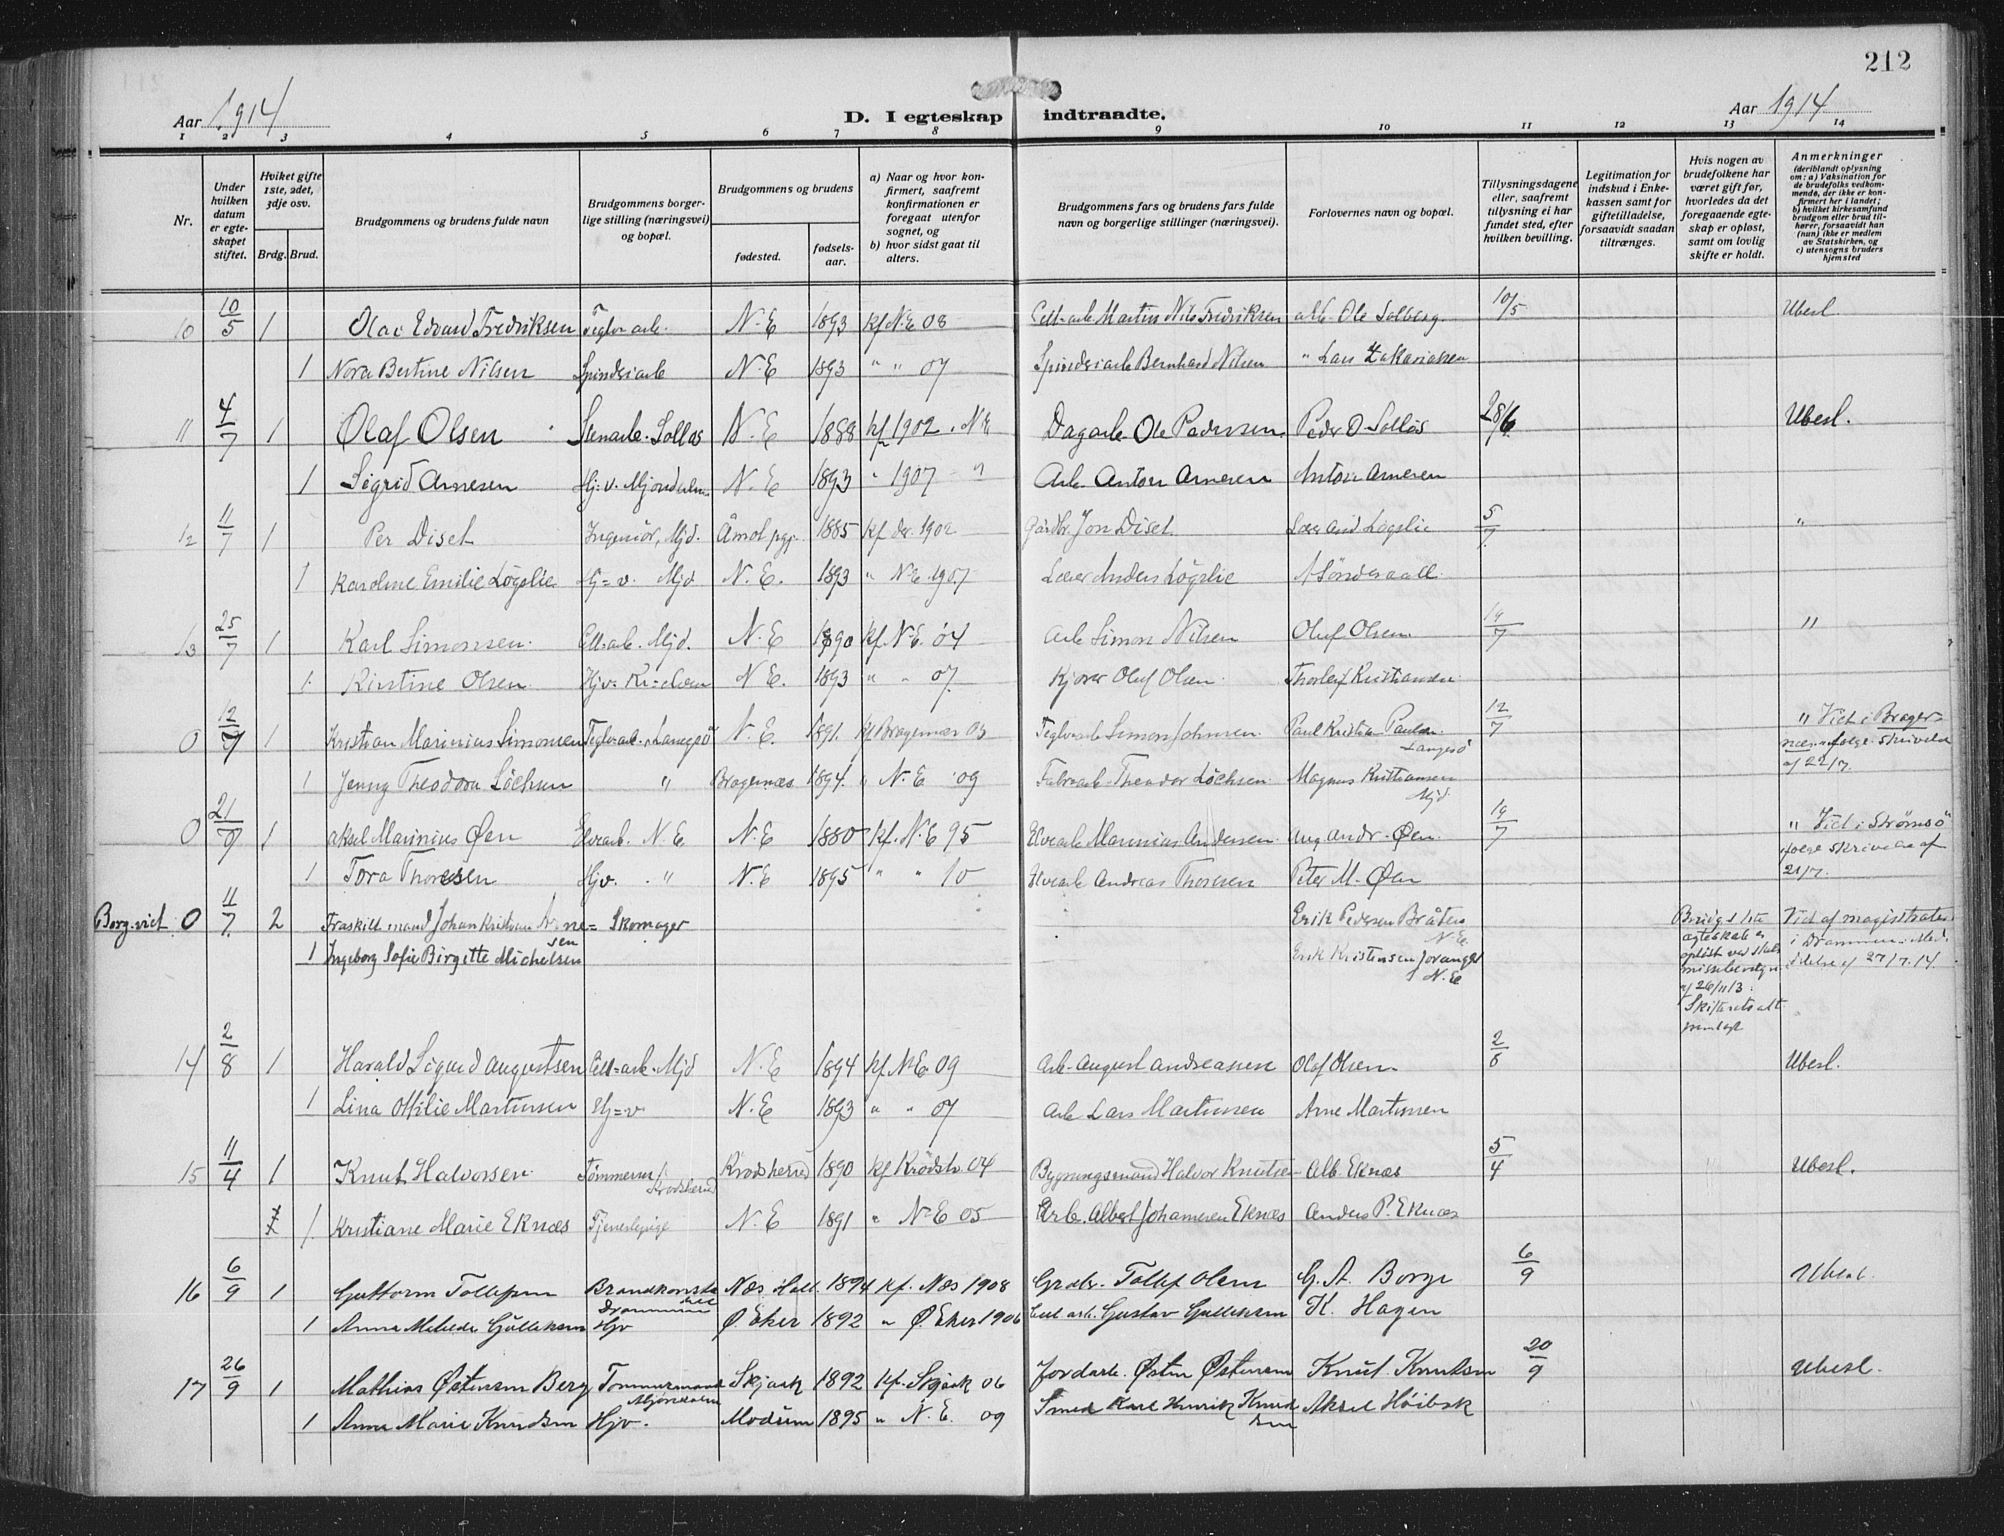 212
Aar 1914
D. I egteskap indtraadte.
Aar 1914
1 2 3 4 5 6 7 8 9 10 11 12 13 14
Nr.
Under hvilken datum er egteskapet stiftet.
Hviket gifte 1ste, 2det, 3dje osv.
Brdg. Brud.
Brudgommens og brudens fulde navn
Brudgommens og brudens borgerlige stilling (næringsvei) og bopæl.
Brudgommens og brudens
fødested.
fødselsaar.
a) Naar og hvor konfirmert, saafremt konfirmationen er foregaat utenfor sognet, og
b) hvor sidst gaat til alters.
Brudgommens fars og brudens fars fulde navn og borgerlige stillinger (næringsvei).
Forlovernes navn og bopæl.
Tillysningsdagene eller, saafremt tillysning ei har fundet sted, efter hvilken bevilling.
Legitimation for indskud i Enkekassen samt for giftetilladelse, forsaavidt saadan tiltrænges.
Hvis nogen av brudefolkene har været gift før, hvorledes da det foregaaende egteskap er opløst, samt om lovlig skifte er holdt.
Anmerkninger (deriblandt oplysning om: a) Vaksination for de brudefolks vedkommende, der ikke er konfirmert her i landet; b) hvilket kirkesamfund brudgom eller brud tilhører, forsaavidt han (hun) ikke er medlem av Statskirken, og c) utensogns bruders hjemsted
10 10/5 1 Olai Edvard Fredriksen Teglv arb. N.E 1893 kf N.E 08 Cell=arb Martin Nils Fredriksen arb. Ole Solberg 10/5 Ubesl.
1 Nora Bertine Nilsen Spinderiarb N.E 1893 " " 07 Spinderiarb Bernhard Nilsen " Lars Zakariassen
11 4/7 1 Olaf Olsen Stenarb. Solløs N.E 1888 kf 1902 N.E Dagarb. Ole Pedersen Peder O. Solløs 28/6 Ubesl.
1 Sigrid Arnesen Hj=v. Mjøndalen N.E 1893 " 1907 " Arb. Anton Arnesen Anton Arnesen
12 11/7 1 Per Diset Ingeniør, Mjd. Åmot pgj. 1885 kf der 1902 Gårdbr. Jon Diset Lærer And Løgslie 5/7 "
1 Karoline Emilie Løgslie Hj=v. Mjd N.E. 1893 " N.E. 1907 Lærer Anders Løgslie A Sønderaall
13 25/7 1 Karl Simonsen Cell=arb. Mjd. N.E 1890 kf. N.E. 04 Arb Simon Nilsen Oluf Olsen 19/7 "
1 Kirstine Olsen Hjv= N.E. 1893 " " 07. Kjører Oluf Olsen Thorleif Kristiansen
0 12/7 1 Kristian Marinius Simonsen Teglv.arb. Langesø N.E. 1891. kf Bragernæs 03 Teglvarb Simon Johnsen Paul Kristian Paulsen Langesø 12/7 " Viet i Bragernæs ifølge skrivelse af 22/7.
1 Jenny Theodora Løchsen " Bragernæs 1894. " N.E 09 Fabrarb. Theodor Løchsen Magnus Kristiansen Mjd
0 21/7 1 Aksel Marinius Øen Elvearb. N.E N.E 1880 kf. N.E 95 Elvearb Marinius Andersen Ung andr. Øen. 19/7 " Viet i Strømsø ifølge skrivelse af 21/7.
1 Tora Thoresen Hjv. " N.E 1895 " " 10 Elvearb Andreas Thoresen Peter M. Øen
Borg.viet 0 11/7 2 Fraskilt mand Johan Kristian Arnesen = Skomager Erik Pedersen Bråten N.E. Brudg.s 1ste ægteskab er opløst ved skilsmissebevilgn. af 26/11/3. Skifteretsatt fremlagt Viet af magistraten i Drammen. Meddelelse af 27/7.14.
1 Ingeborg Sofie Birgitte Michelsen Erik Kristensen N.E
14 2/8 1 Harald Sigurd Augustsen Cell=arb. Mjd N.E 1894 kf N.E 09 Arb. August Andreassen Olaf Olsen 2/8 Ubesl.
1 Lina Otilie Martinsen Hj=v N.E 1893 " " 07 Arb Lars Martinsen Arne Martinsen
15 11/4 1 Knut Halvorsen Tømmerm. Krødsherred Krødsherred 1890 kf Krødsh. 04 Bygningsmand Halvor Knutsen Alb. Eknæs 5/4 Ubesl.
1 Kristiane Marie Eknæs Tjenestepige N.E 1891 " N.E 05 Arb. Albert Johannesen Eknæs Anders P. Eknæs
16 6/9 1 Guttorm Tollefsen Brandkonstabel Drammen Næs Hall. 1894 kf. Næs 1908 Grdbr. Tollef Olsen G. A. Borge 6/9 Ubesl.
1 Anna Gulliksen Hjv Ø. Eker 1892 " Ø. Eker 1906 Cell arb. Gustav Gulliksen K. Hagen
17 26/9 1 Mathias Østensen Berg Tømmermand Mjøndalen Skjaak 1892 kf. Skjaak 06 Jordarb. Østen Østensen Knut Knutsen 20/9 Ubesl.
1 Anna Marie Knudsen Hjv. Modum 1895 " N.E. 09 Smed Karl Henrik Knudsen Aksel Høibak